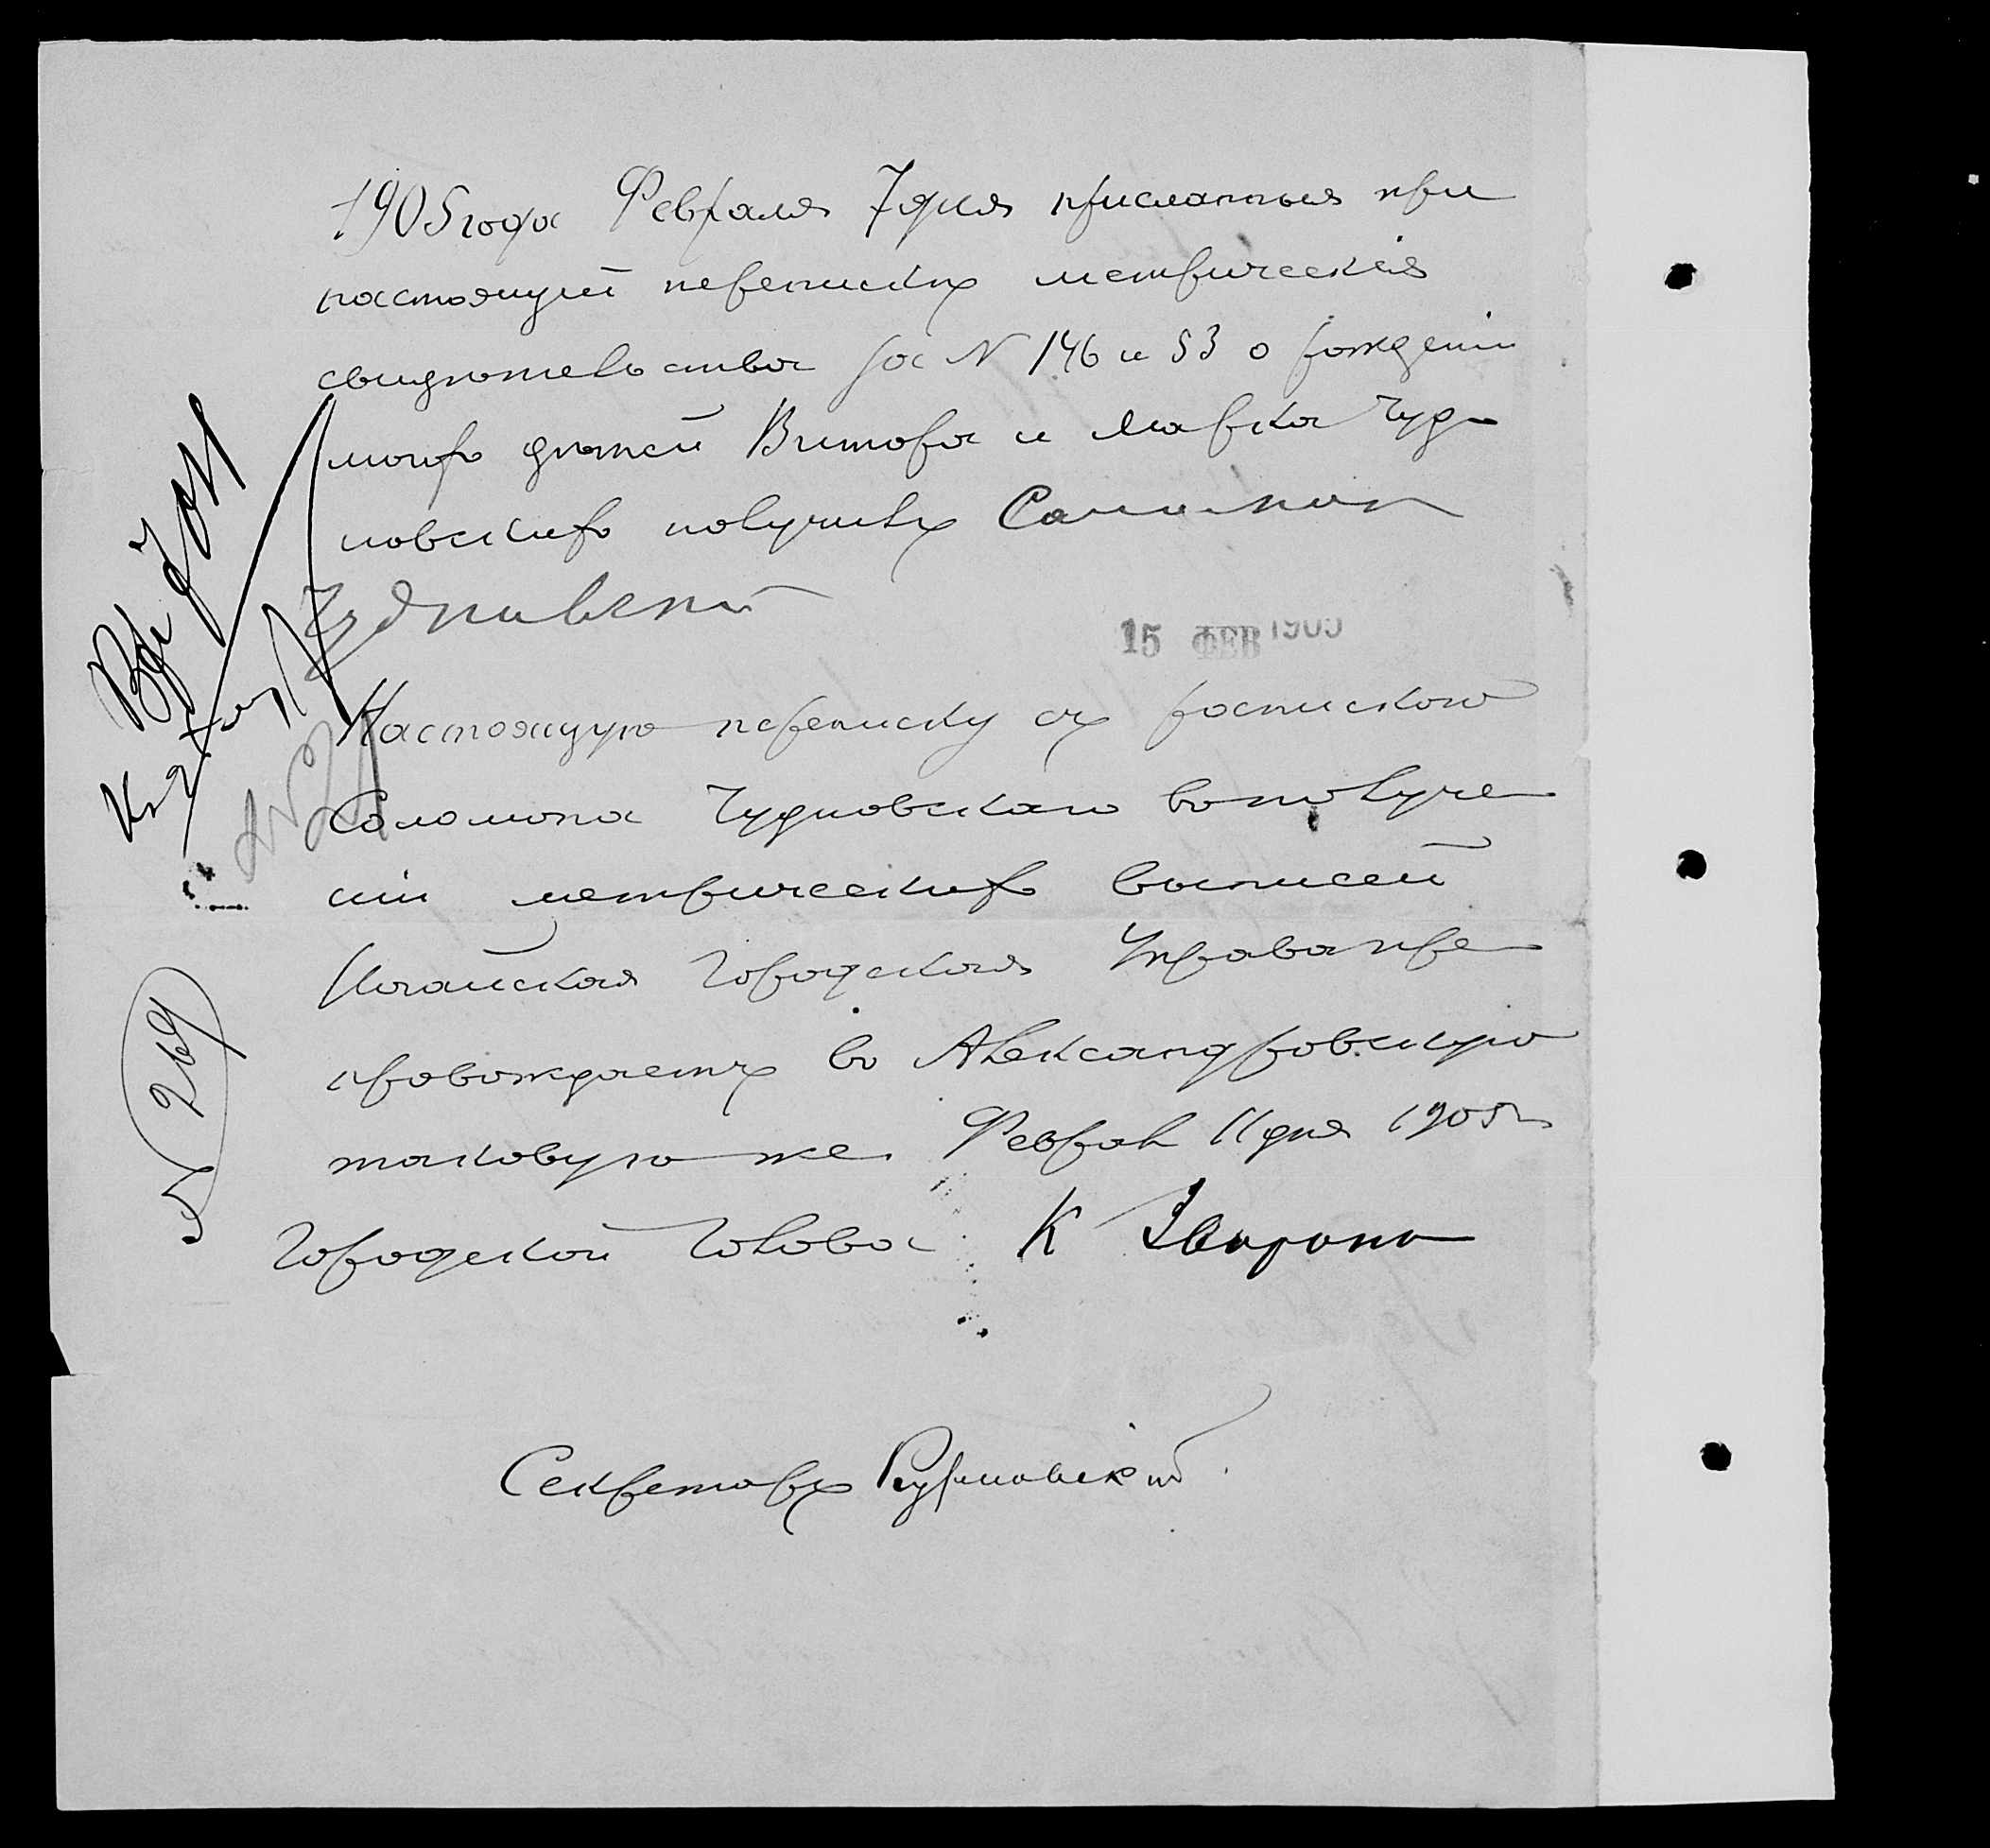 1905 года Февраля 7 дня присланныя при
настоящей перепискѣ метрическiя
свидѣтельства за N 146 и 53 о рожденiи
моихъ дѣтей Виктора и Марка Чуд
новскихъ получилъ Соломон
Чудновский
15 ФЕВ 1905
Настоящую переписку съ роспискою
Соломона Чудновскаго въ получе
нiи метрическихъ выписей
Ногайская Городская Управа пре
провождаетъ въ Александровскую
таковую же. Феврал 11 дня 1905 г
N 269
Городской Голова К
Секретарь